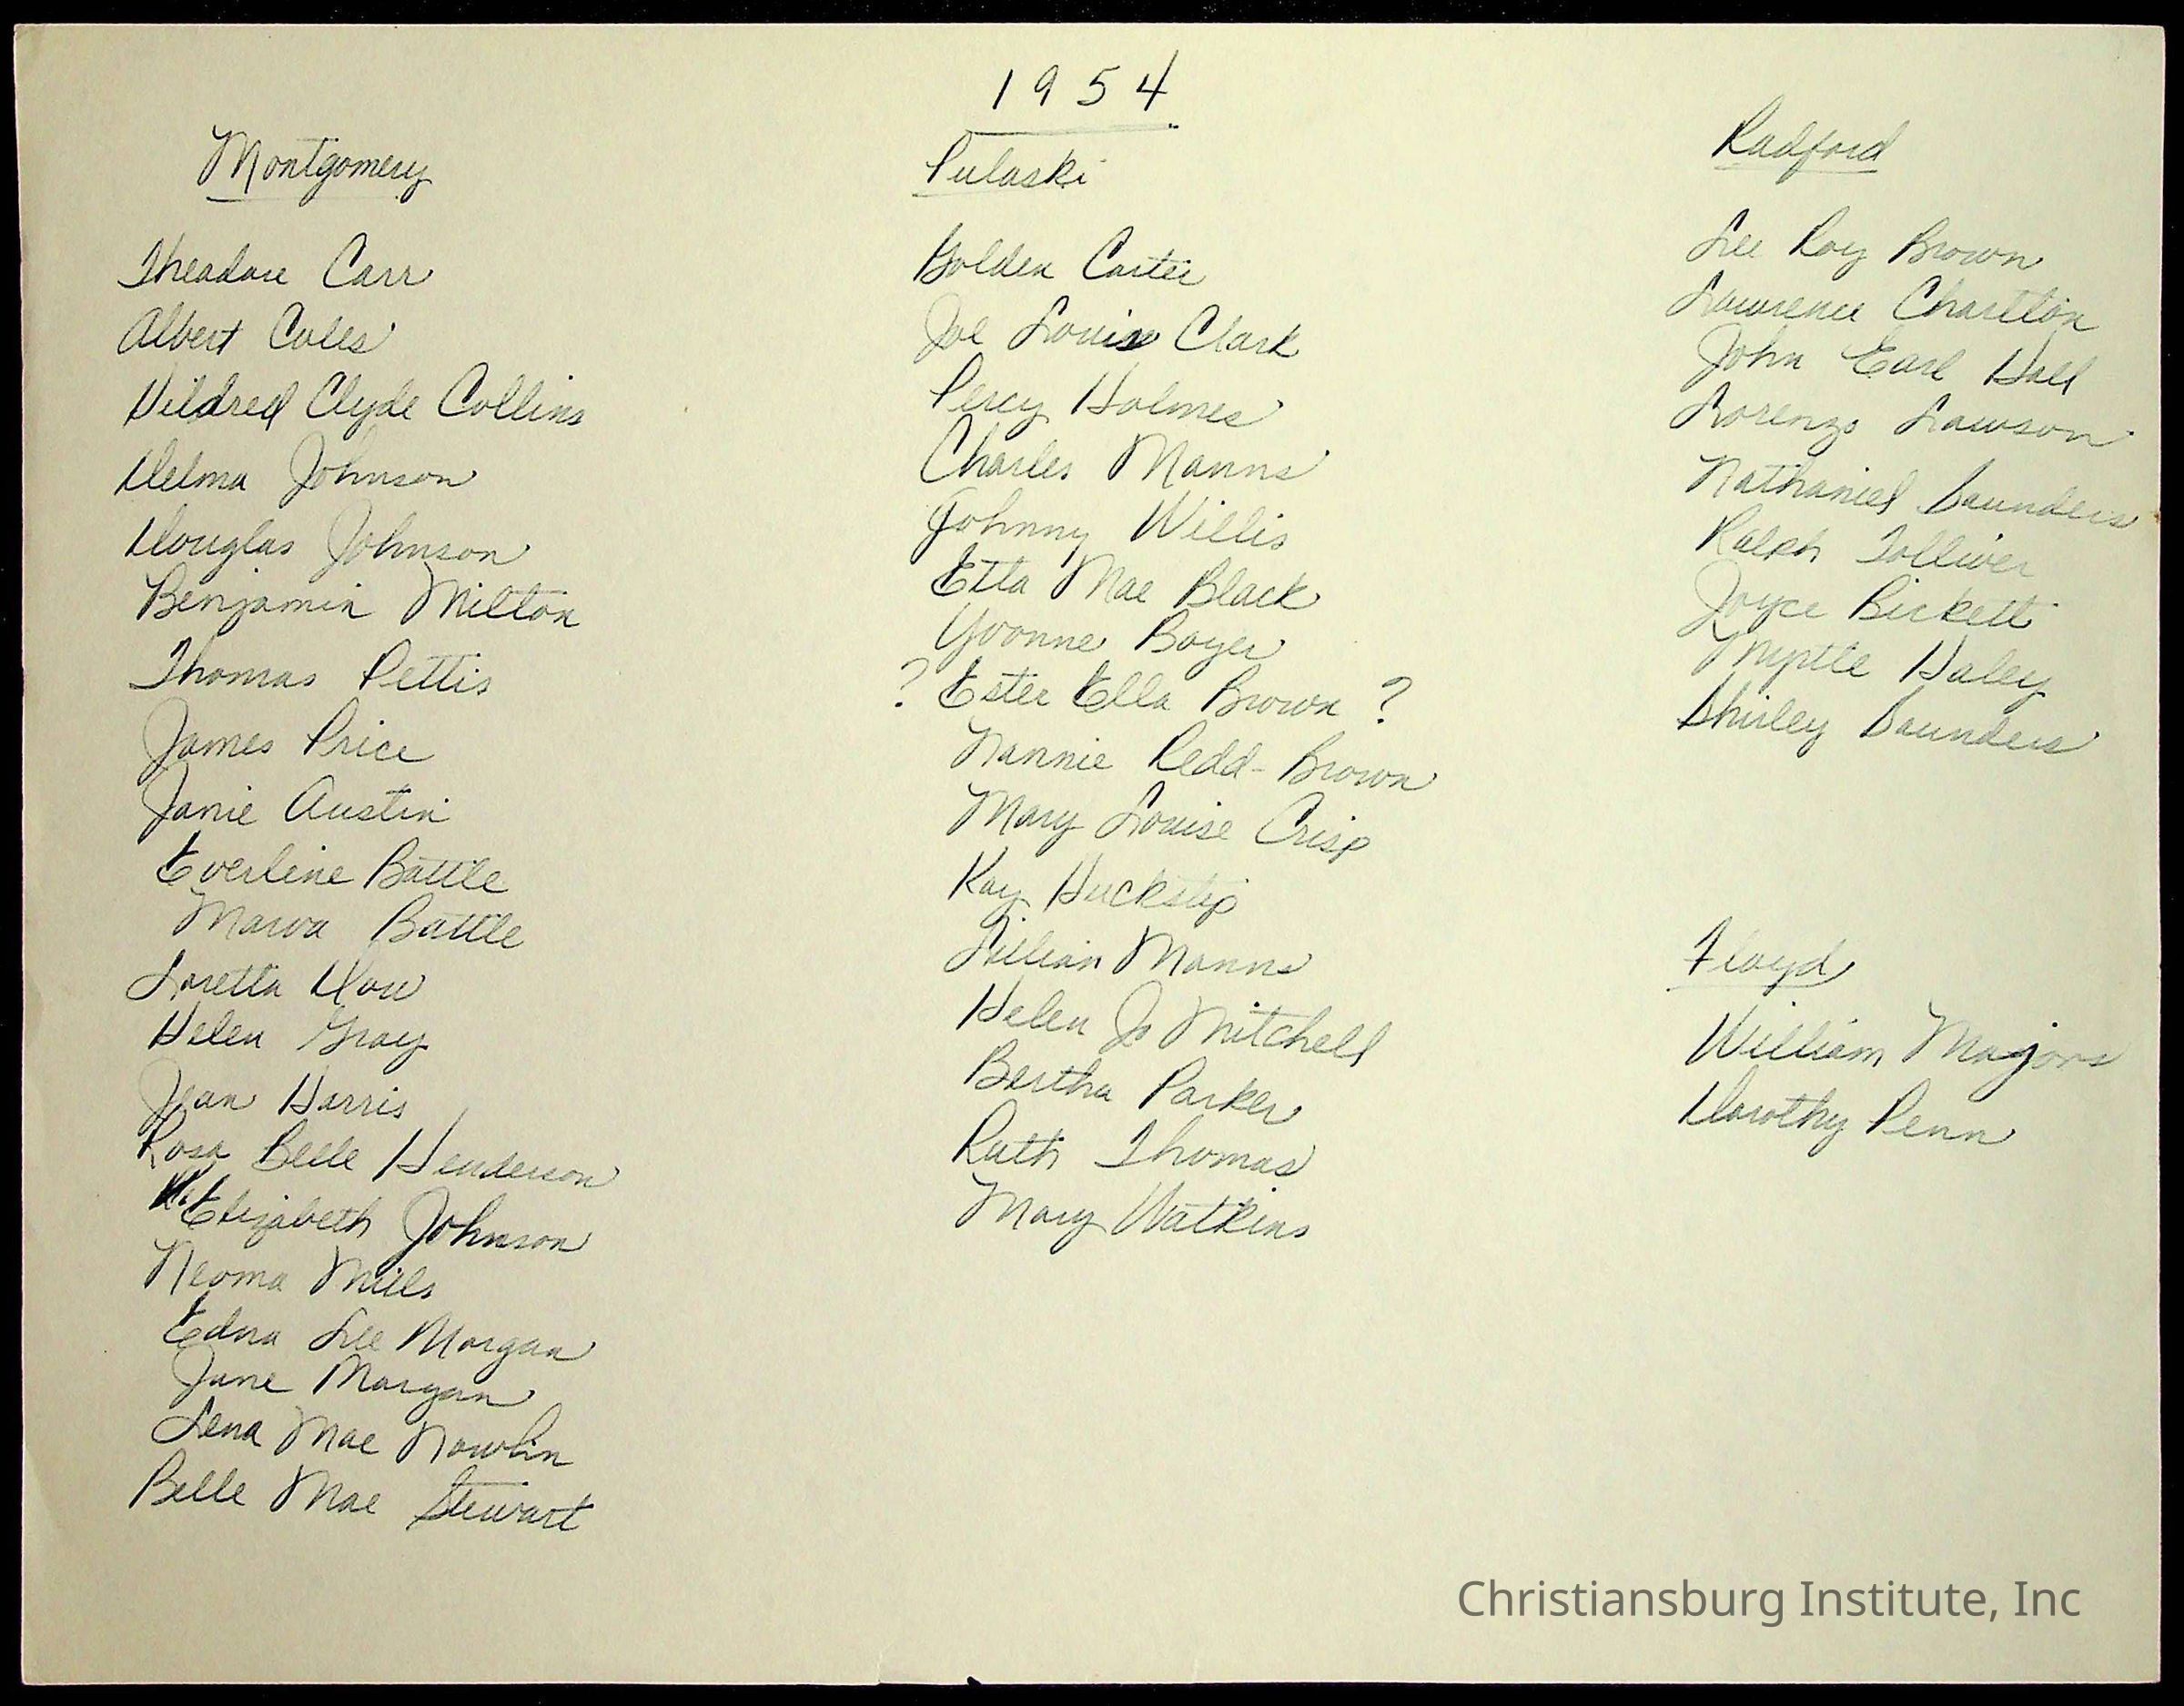 1954
Montgomery
Theadore Carr
Albert Coles
Hildred Clyde Collins
Delma Johnson
Douglas Johnson
Benjamin Milton
Thomas Pettis
James Price
Janie Austin
Everline Battle
Marva Battle
Loretta Dow
Helen Gray
Jean Harris
Rosa Belle Henderson
Elizabeth Johnson
Neoma Mills
Edna Lee Morgan
June Morgan
Lena Mae Nowlin
Belle Mae Stewart
Pulaski
Golden Carter
Joe Louis Clark
Percy Holmes
Charles Manns
Johnny Willis
Etta Mae Black
Yvonne Boyer
? Ester Ella Brown ?
Nannie Redd-Brown
Mary Louise Crisp
Kay Huckstip
Lillian Manns
Helen Jo Mitchell
Bertha Parker
Ruth Thomas
Mary Watkins
Radford
Lee Roy Brown
Lawrence Charlton
John Earl Hall
Lorenzo Lawson
Nathaniel Saunders
Ralph Tolliver
Joyce Birkett
Myrtle Haley
Shirley Saunders
Floyd
William Majors
Dorothy Penn
Christiansburg Institute, Inc